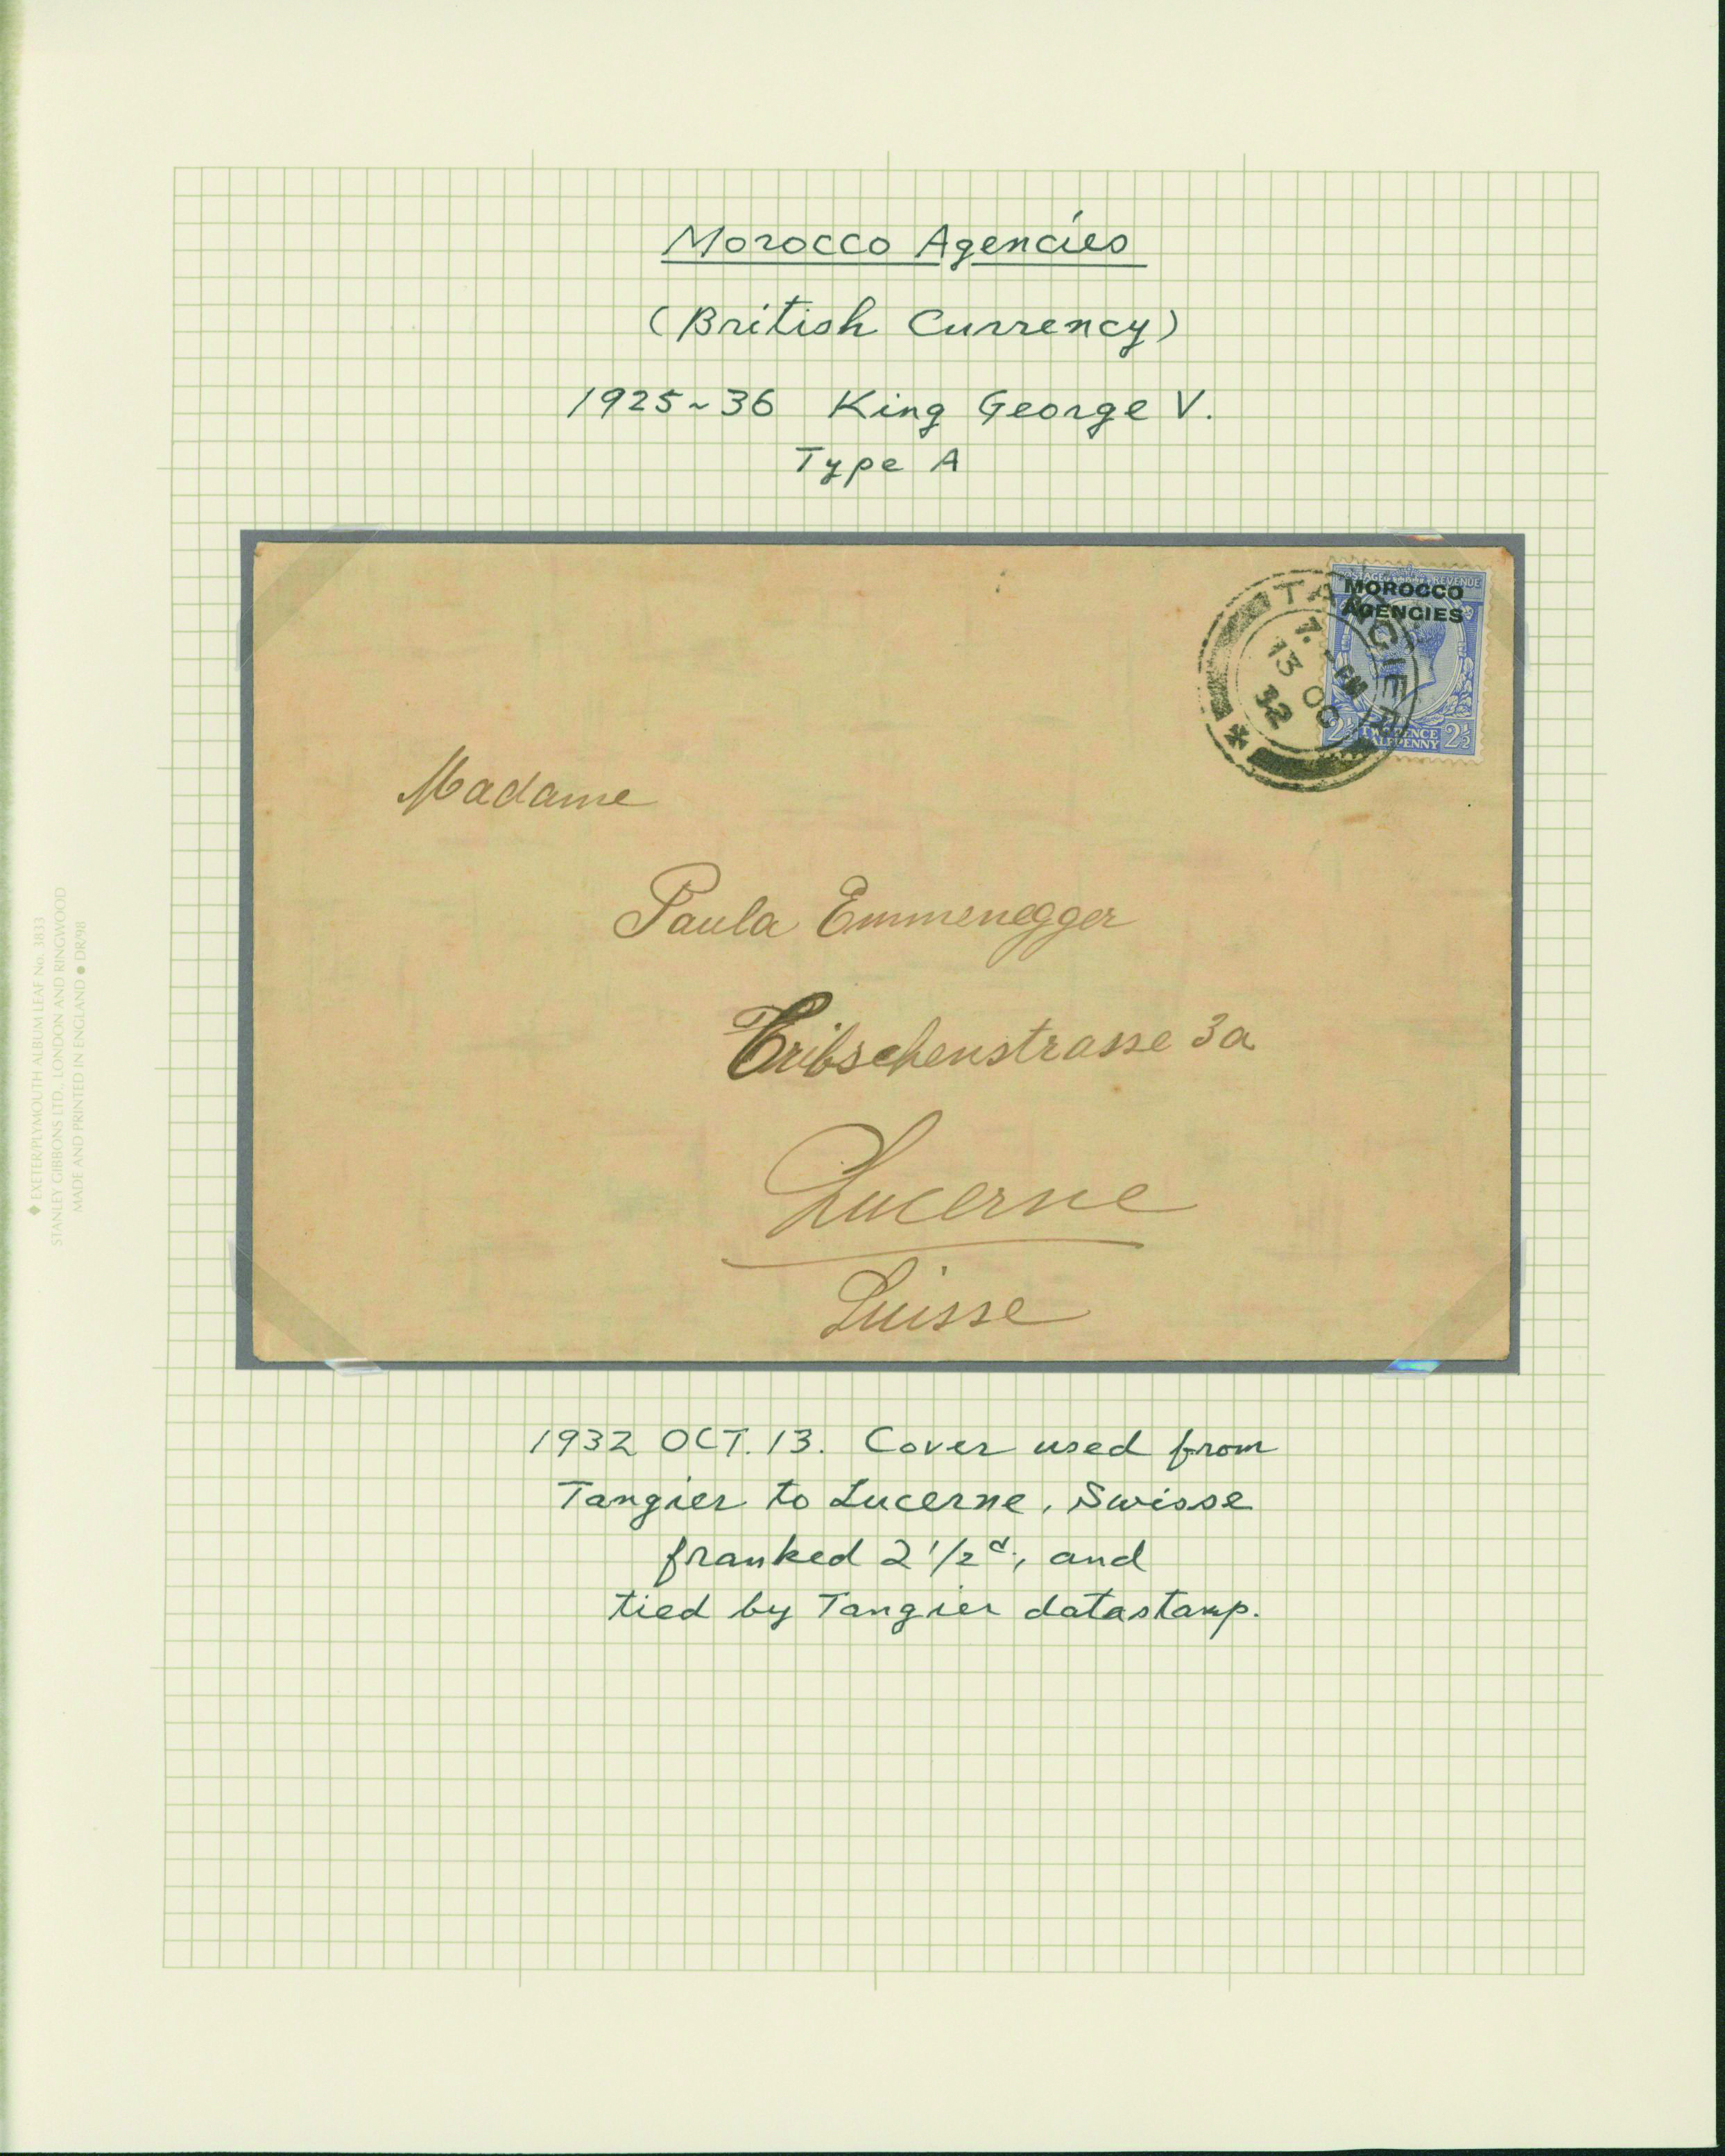 Morocco Agencies
(British Currency)
1925~36 King George V.
Type A
POSTAGE REVENUE
MOROCCO
AGENCIES
TANGIER
7. PM
13 OC
32
2½ TWO PENCE 2½
HALFPENNY
Madame
Paula Emmenegger
Tribschenstrasse 3a
Lucerne
Suisse
1932 OCT. 13. Cover used from
Tangier to Lucerne, Swisse
franked 2 1/2 d., and
tied by Tangier datastamp.
◆ EXETER/PLYMOUTH ALBUM LEAF No. 3833
STANLEY GIBBONS LTD., LONDON AND RINGWOOD
MADE AND PRINTED IN ENGLAND ● DR/98